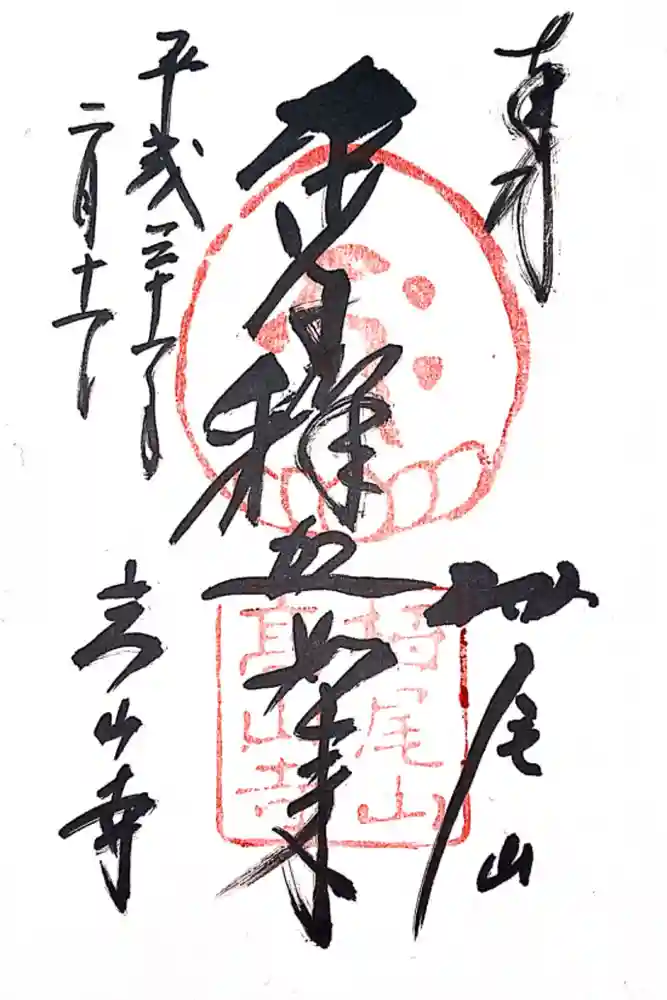 奉拝
栂尾山
釋迦如来
平成三十一年
二月十一日
高山寺
栂尾山
高山寺